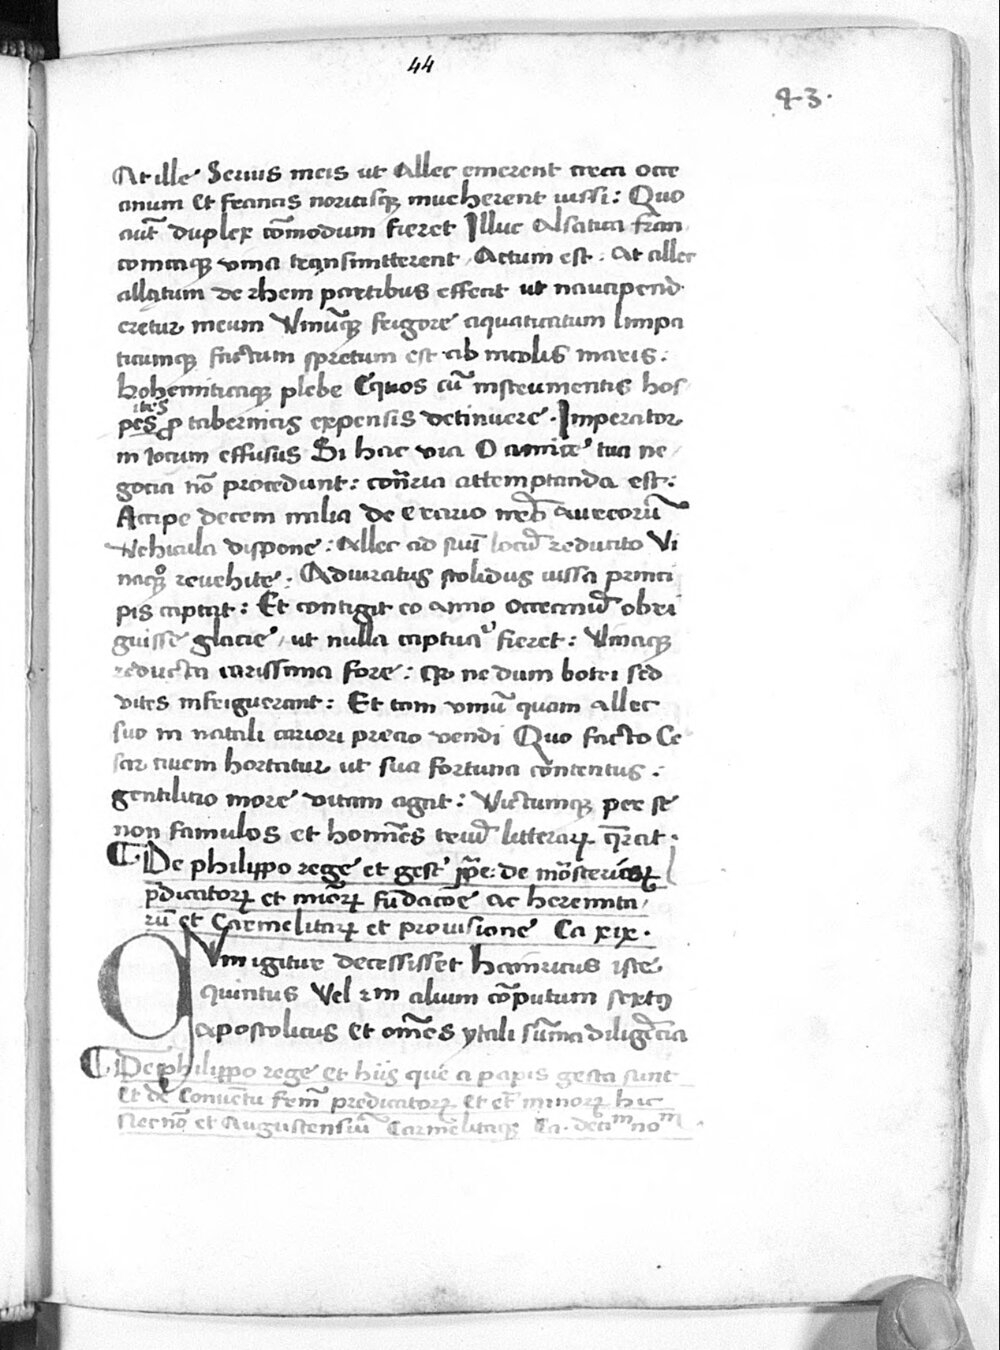 44
43.
At ille Seruis meis ut Allec emerent circa occe
anum et francis noricisq; mucherent iussi: Quo
aut̄ duplex cōmodum fieret Illuc Alsatica fran
conicaq; vina transmitterent. Actum est: At allec
allatum de rheni partibus effecit ut naucipend
eretur meum Vinūq; frigore aquaticatum limpa
ticumq; factum spretum est ab incolis maris:
bohemiticaq; plebe Equos cū instrumentis hos
ites
pes ꝓ tabernicis expensis detinuere. Imperator
in iocum effusus Si hac via O amice tua ne
gocia nō procedunt: cōtraria attemptanda est:
Accipe decem milia de erario nr̄o aureorū
Vehicula dispone: Allec ad suū locū reducito Vi
naq; reuehite: Adiuratus stolidus iussa princi
pis captat: Et contigit eo anno occeanū obri
guisse glacie, ut nulla captura fieret: Vinaq;
reducta carissima fore: qꝫ nedum botri sed
vites infriguerant: Et tam vinū quam allec
suo in natali cariori precio vendi Quo facto Ce
sar ciuem hortatur ut sua fortuna contentus:
gentilitio more vitam agat: Victumq; per se
non famulos et homines rudis litterarꝝ querat.
De philippo rege et gestꝭ ip̄e: de mōsterioꝝ
p̄dicatorꝝ et minorꝝ fūdacōe ac heremita
rū et Carmelitarꝝ et prouisione Ca xix.
Qvm igitur decessisset hainricus iste
quintus Vel in alium cōputum sextꝰ
apostolicus et om̄es ytali sūma diligēcia
De philippo rege et hijs que a papis gesta sunt
Et de Conuētu frm̄ predicatorꝝ Et et̄ minorꝝ hic
Necnō et Augustensiū Carmēlitaq; Ca. deciᵐnoᵐ.